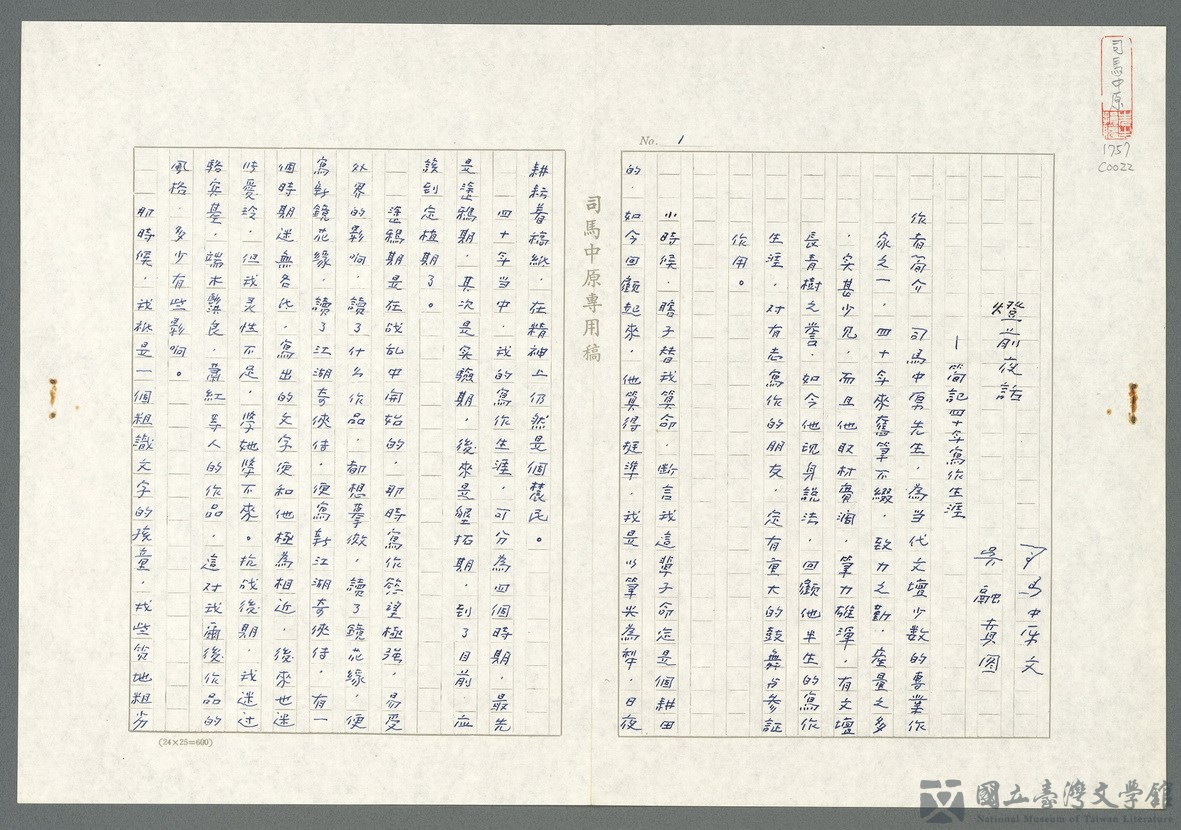 司馬中原
1757
C0022
No. 1
司馬中原文
吳融賁圖
燈前夜話
—簡記四十年寫作生涯
作者簡介 司馬中原先生,為當代文壇少數的專業作
家之一,四十年來奮筆不綴,致力之勤,產量之多
,实甚少見,而且他取材廣濶,筆力雄渾,有文壇
長青樹之譽,如今他現身說法,回顧他半生的寫作
生涯,对有志寫作的朋友,定有重大的鼓舞与參証
作用。
小時候,瞎子替我算命,断言我這輩子命定是個耕田
的,如今回顧起來,他算得挺準,我是以筆尖為犁,日夜
司馬中原專用稿
耕耘着稿紙,在精神上仍然是個農民。
四十年当中,我的寫作生涯,可分為四個時期,最先
是塗鴉期,其次是实驗期,後來是墾拓期,到了目前,应
該到定植期了。
塗鴉期是在战乱中開始的,那時寫作慾望極強,易受
外界的影响,讀了什么作品,都想摹倣,讀了鏡花緣,便
寫新鏡花緣,讀了江湖奇俠传,便寫新江湖奇俠传,有一
個時期迷無名氏,寫出的文字便和他極為相近,後來也迷
過憂玲,但我灵性不足,學她學不來。抗战後期,我迷过
駱宾基,端木蕻良,蕭紅等人的作品,這对我爾後作品的
風格,多少有些影响。
那時候,我祇是一個粗識文字的孩童,战些貧地粗劣
(24×25=600)
國立臺灣文學館
National Museum of Taiwan Literature